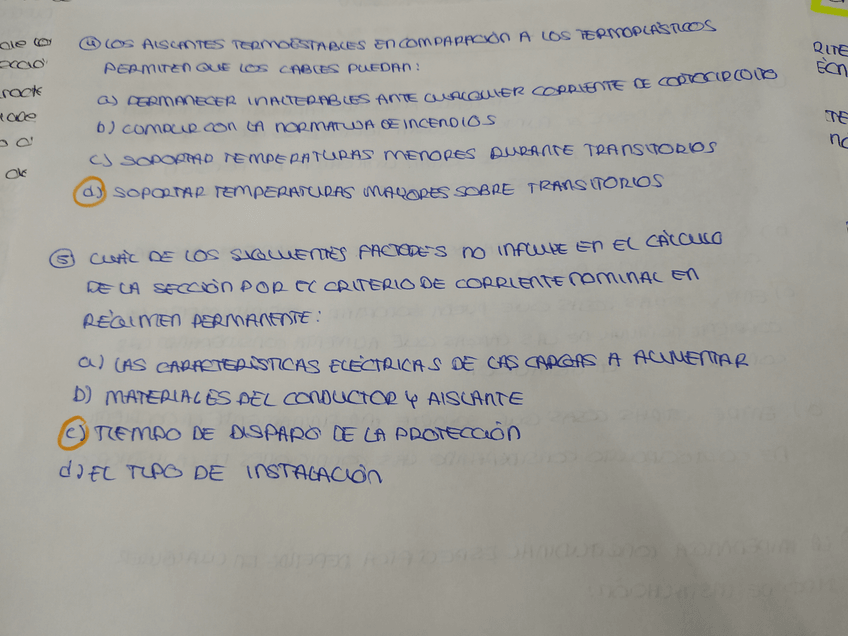 ole co
ecció
rook
iode
o a'
ok
④ LOS AISLANTES TERMOESTABLES EN COMPARACIÓN A LOS TERMOPLÁSTICOS
PERMITEN QUE LOS CABLES PUEDAN:
a) PERMANECER INALTERABLES ANTE CUALQUIER CORRIENTE DE CORTOCIRCUITO
b) CUMPLIR CON LA NORMATIVA DE INCENDIOS
c) SOPORTAR TEMPERATURAS MENORES DURANTE TRANSITORIOS
d) SOPORTAR TEMPERATURAS MAYORES SOBRE TRANSITORIOS
⑤ CUÁL DE LOS SIGUIENTES FACTORES NO INFLUYE EN EL CÁLCULO
DE LA SECCIÓN POR EL CRITERIO DE CORRIENTE NOMINAL EN
RÉGIMEN PERMANENTE:
a) LAS CARACTERÍSTICAS ELÉCTRICAS DE LAS CARGAS A ALIMENTAR
b) MATERIALES DEL CONDUCTOR Y AISLANTE
c) TIEMPO DE DISPARO DE LA PROTECCIÓN
d) EL TIPO DE INSTALACIÓN
RITE
ÉCN
TE
NO